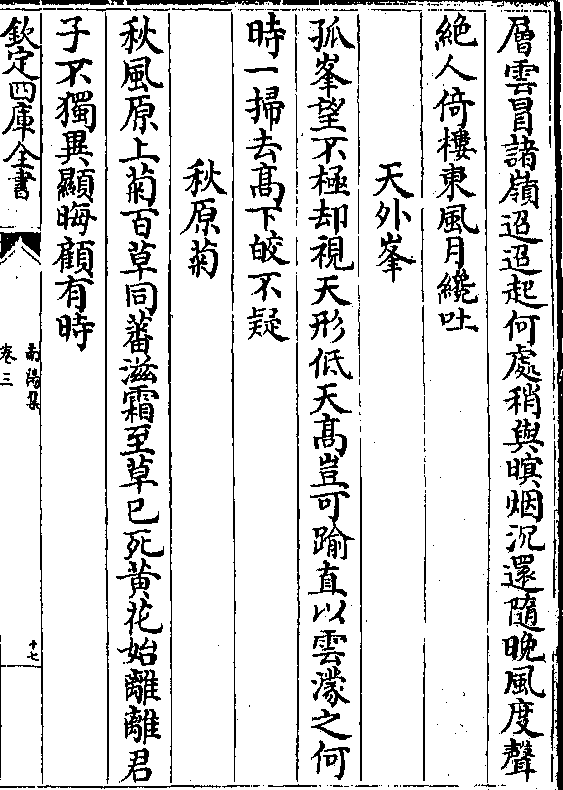 層雲冒諸嶺迢迢起何處稍與暝烟沉還隨晚風度聲
絶人倚樓東風月纔吐
天外峯
孤峯望不極却視天形低天髙豈可踰直以雲濛之何
時一掃去髙下皎不疑
秋原菊
秋風原上菊百草同蕃滋霜至草已死黄花始離離君
子不獨異顯晦顧有時
欽定四庫全書
南陽集
卷三
十七